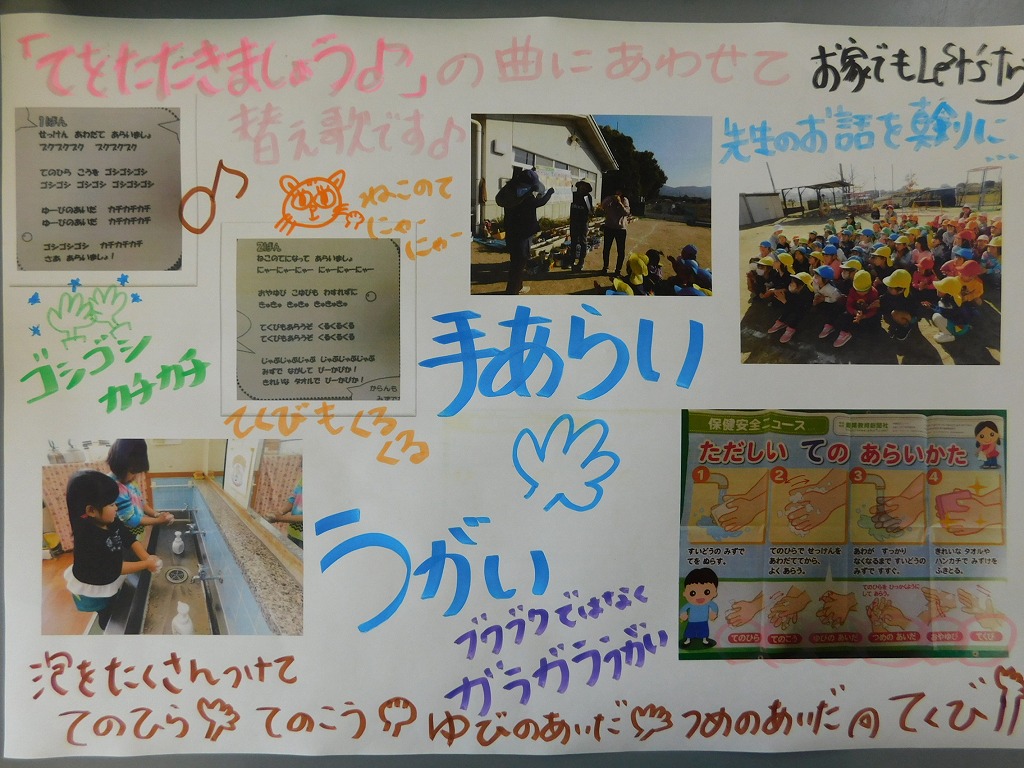 「てをたたきましょう♪」の曲にあわせて
替え歌です♪
お家でもLet's try
先生のお話を真剣に…
1ばん
せっけん あわだて あらいましょ
ブクブクブク ブクブクブク
てのひら こうを ゴシゴシゴシ
ゴシゴシ ゴシゴシ ゴシゴシゴシ
ゆーびのあいだ カチカチカチ
ゆーびのあいだ カチカチカチ
ゴシゴシゴシ カチカチカチ
さあ あらいましょ!
ねこのて
にゃー
にゃー
2ばん
ねこのてになって あらいましょ
にゃーにゃーにゃー にゃーにゃーにゃー
おやゆび こゆびも わすれずに
きゅきゅ きゅきゅ きゅきゅきゅ
てくびもあらうぞ くるくるくる
てくびもあらうぞ くるくるくる
じゃぶじゃぶじゃぶ じゃぶじゃぶじゃぶ
みずで ながして ぴーかぴか!
きれいな タオルで ぴーかぴか!
ゴシゴシ
カチカチ
てくびもくるくる
手あらい
うがい
ブクブクではなく
ガラガラうがい
保健安全ニュース
ただしい ての あらいかた
1 2 3 4
すいどうの みずで
てを ぬらす。
てのひらで せっけんを
あわだててから、
よく あらう。
あわが すっかり
なくなるまで すいどうの
みずで すすぐ。
きれいな タオルや
ハンカチで みずけを
ふきとる。
てのひらを ひっかくように
して あらう。
てのひら てのこう ゆびの あいだ つめの あいだ おやゆび てくび
泡をたくさんつけて
てのひら てのこう ゆびのあいだ つめのあいだ てくび